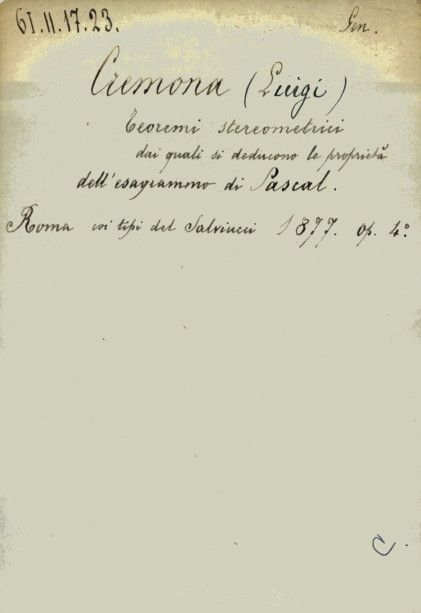 61.11.17.23. Gen.
Cremona (Luigi)
Teoremi stereometrici
dai quali si deducono le proprietà
dell'esagrammo di Pascal.
Roma coi tipi del Salviucci 1877. op. 4°
C.